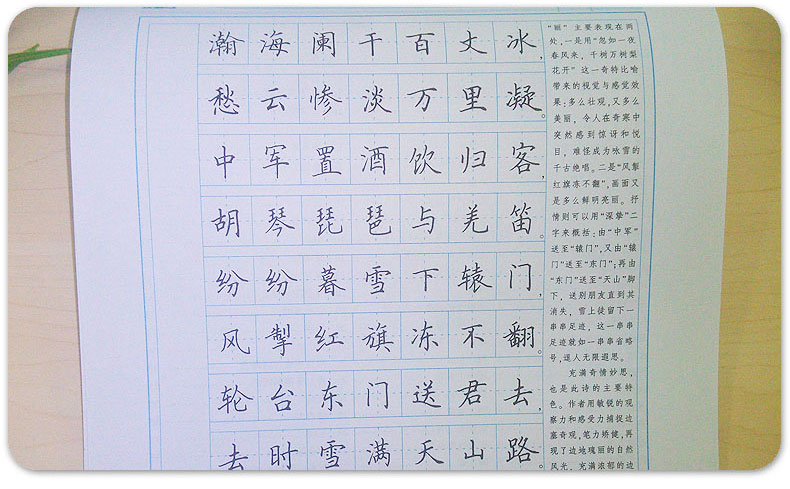 瀚海阑干百丈冰，
愁云惨淡万里凝。
中军置酒饮归客，
胡琴琵琶与羌笛。
纷纷暮雪下辕门，
风掣红旗冻不翻。
轮台东门送君去，
去时雪满天山路。
“丽”主要表现在两
处，一是用“忽如一夜
春风来，千树万树梨
花开”这一奇特比喻
带来的视觉与感觉效
果：多么壮观，又多么
美丽，令人在奇寒中
突然感到惊讶和悦
目，难怪成为咏雪的
千古绝唱。二是“风掣
红旗冻不翻”，画面又
是多么鲜明亮丽。抒
情则可以用“深挚”二
字来概括：由“中军”
送至“辕门”，又由“辕
门”送至“东门”；再由
“东门”送至“天山”脚
下，送别朋友直到其
消失，雪上徒留下一
串串足迹，这一串串
足迹就如一串串省略
号，逗人无限遐思。
充满奇情妙思，
也是此诗的主要特
色。作者用敏锐的观
察力和感受力捕捉边
塞奇观，笔力矫健，再
现了边地瑰丽的自然
风光，充满浓郁的边